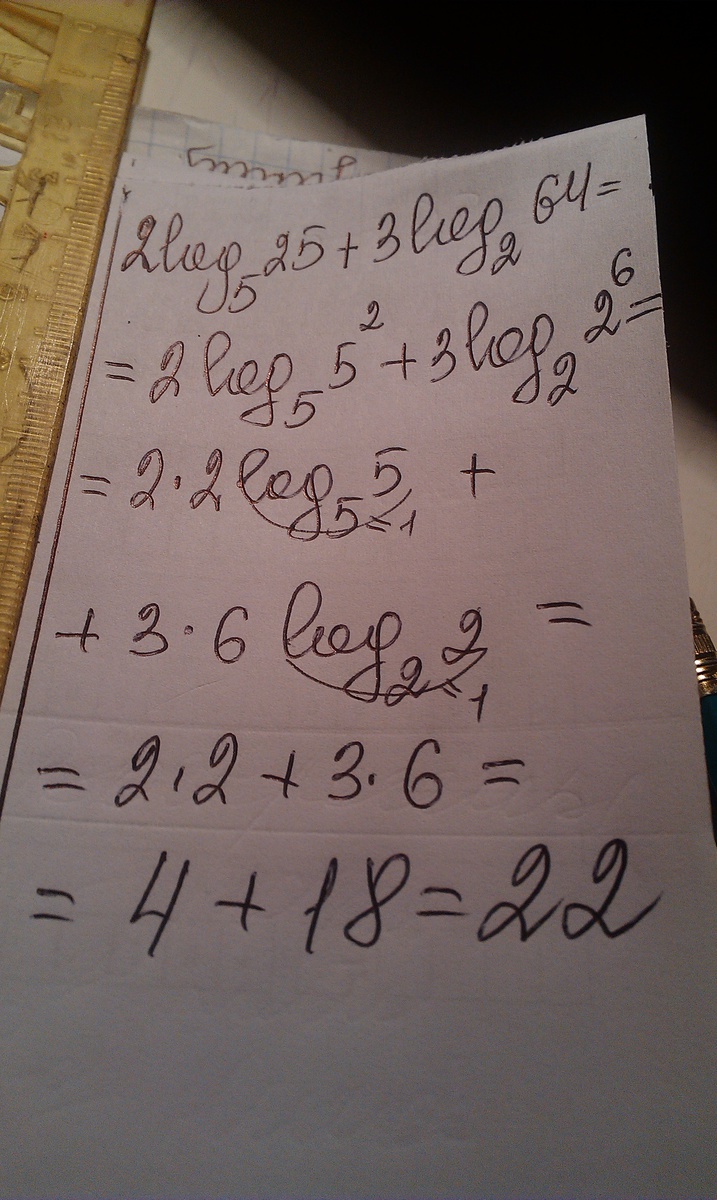 2log₅25+3log₂64=
=2log₅5²+3log₂2⁶=
=2·2log₅5 +
=1
+3·6 log₂2 =
=1
=2·2+3·6=
=4+18=22